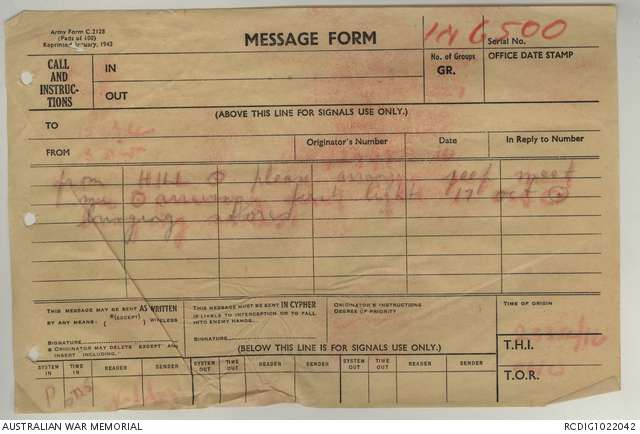 Army Form C.2128
(Pads of 100)
Reprinted January, 1943
MESSAGE FORM
IN 6500
Serial No.
CALL
AND
INSTRUC-
TIONS
IN
OUT
No. of Groups
GR.
OFFICE DATE STAMP
(ABOVE THIS LINE FOR SIGNALS USE ONLY.)
TO
FROM
Originator's Number
Date
In Reply to Number
from HILL ⊙ please jeep meet
me ⊙ first light 17 oct ⊙
bringing stores
THIS MESSAGE MAY BE SENT AS WRITTEN
BY ANY MEANS. (*(EXCEPT) ) WIRELESS
SIGNATURE
ORIGINATOR MAY DELETE EXCEPT AND
INSERT INCLUDING.
THIS MESSAGE MUST BE SENT IN CYPHER
IF LIKELY TO INTERCEPTION OR TO FALL
INTO ENEMY HANDS.
SIGNATURE
ORIGINATOR'S INSTRUCTIONS
DEGREE OF PRIORITY
TIME OF ORIGIN
T.H.I.
T.O.R.
(BELOW THIS LINE IS FOR SIGNALS USE ONLY.)
SYSTEM IN TIME IN READER SENDER SYSTEM OUT TIME OUT READER SENDER SYSTEM OUT TIME OUT READER SENDER
P
AUSTRALIAN WAR MEMORIAL
RCDIG1022042